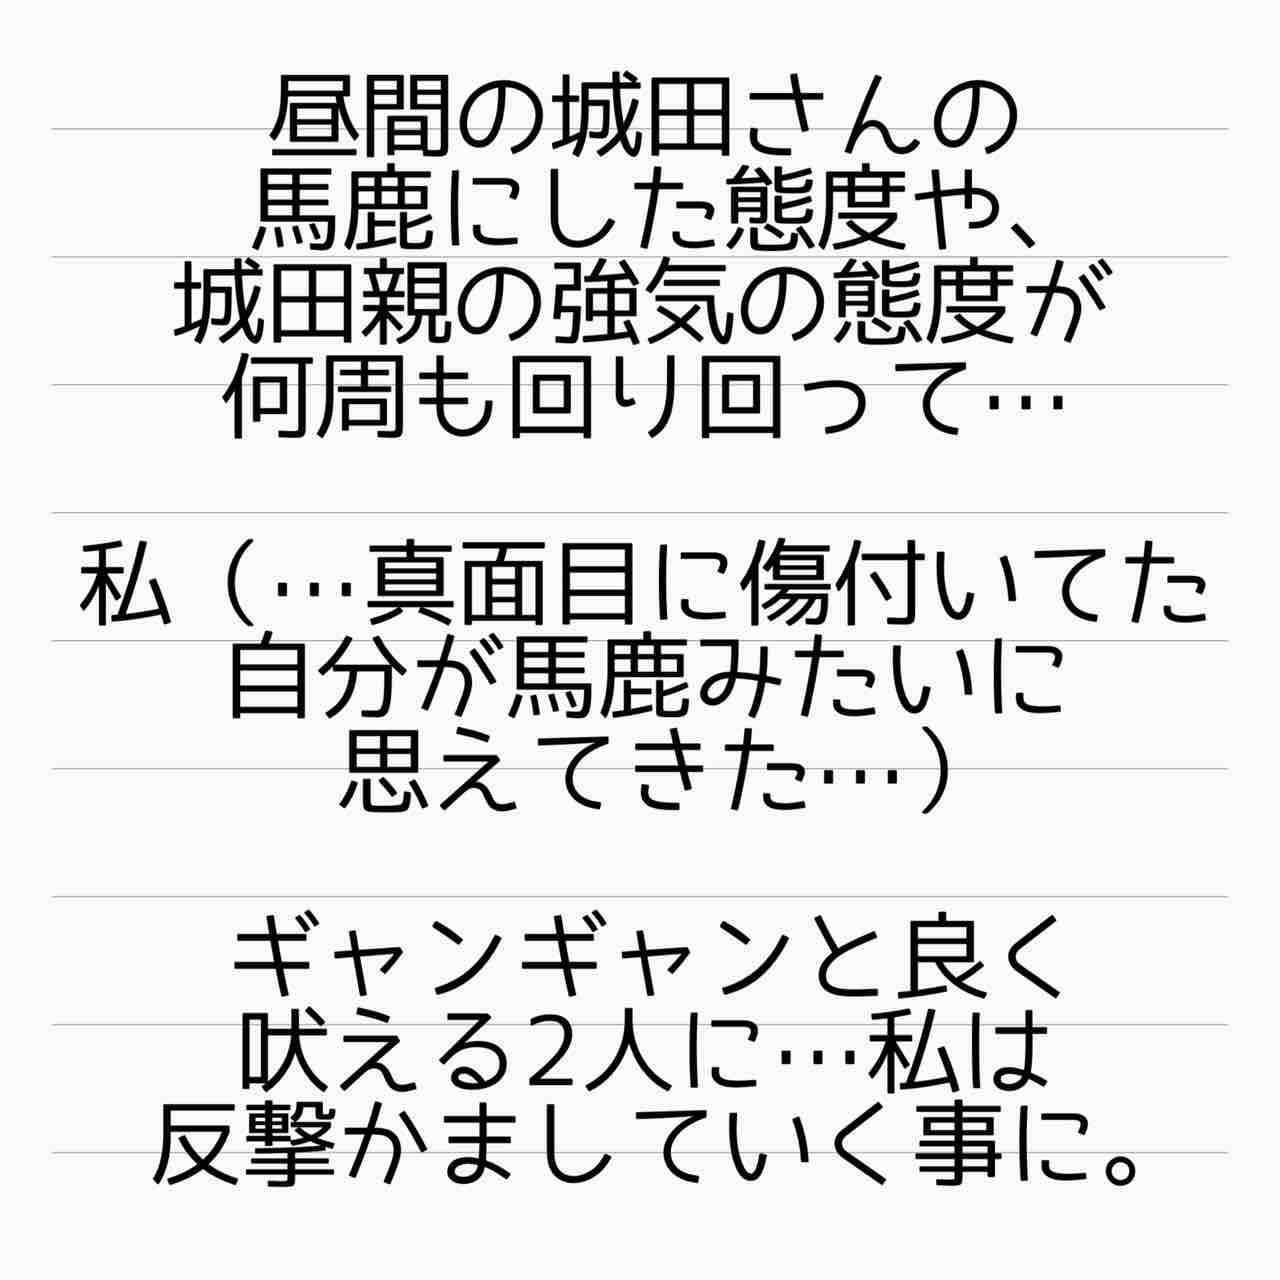 昼間の城田さんの
馬鹿にした態度や、
城田親の強気の態度が
何周も回り回って…
私（…真面目に傷付いてた
自分が馬鹿みたいに
思えてきた…）
ギャンギャンと良く
吠える2人に…私は
反撃かましていく事に。